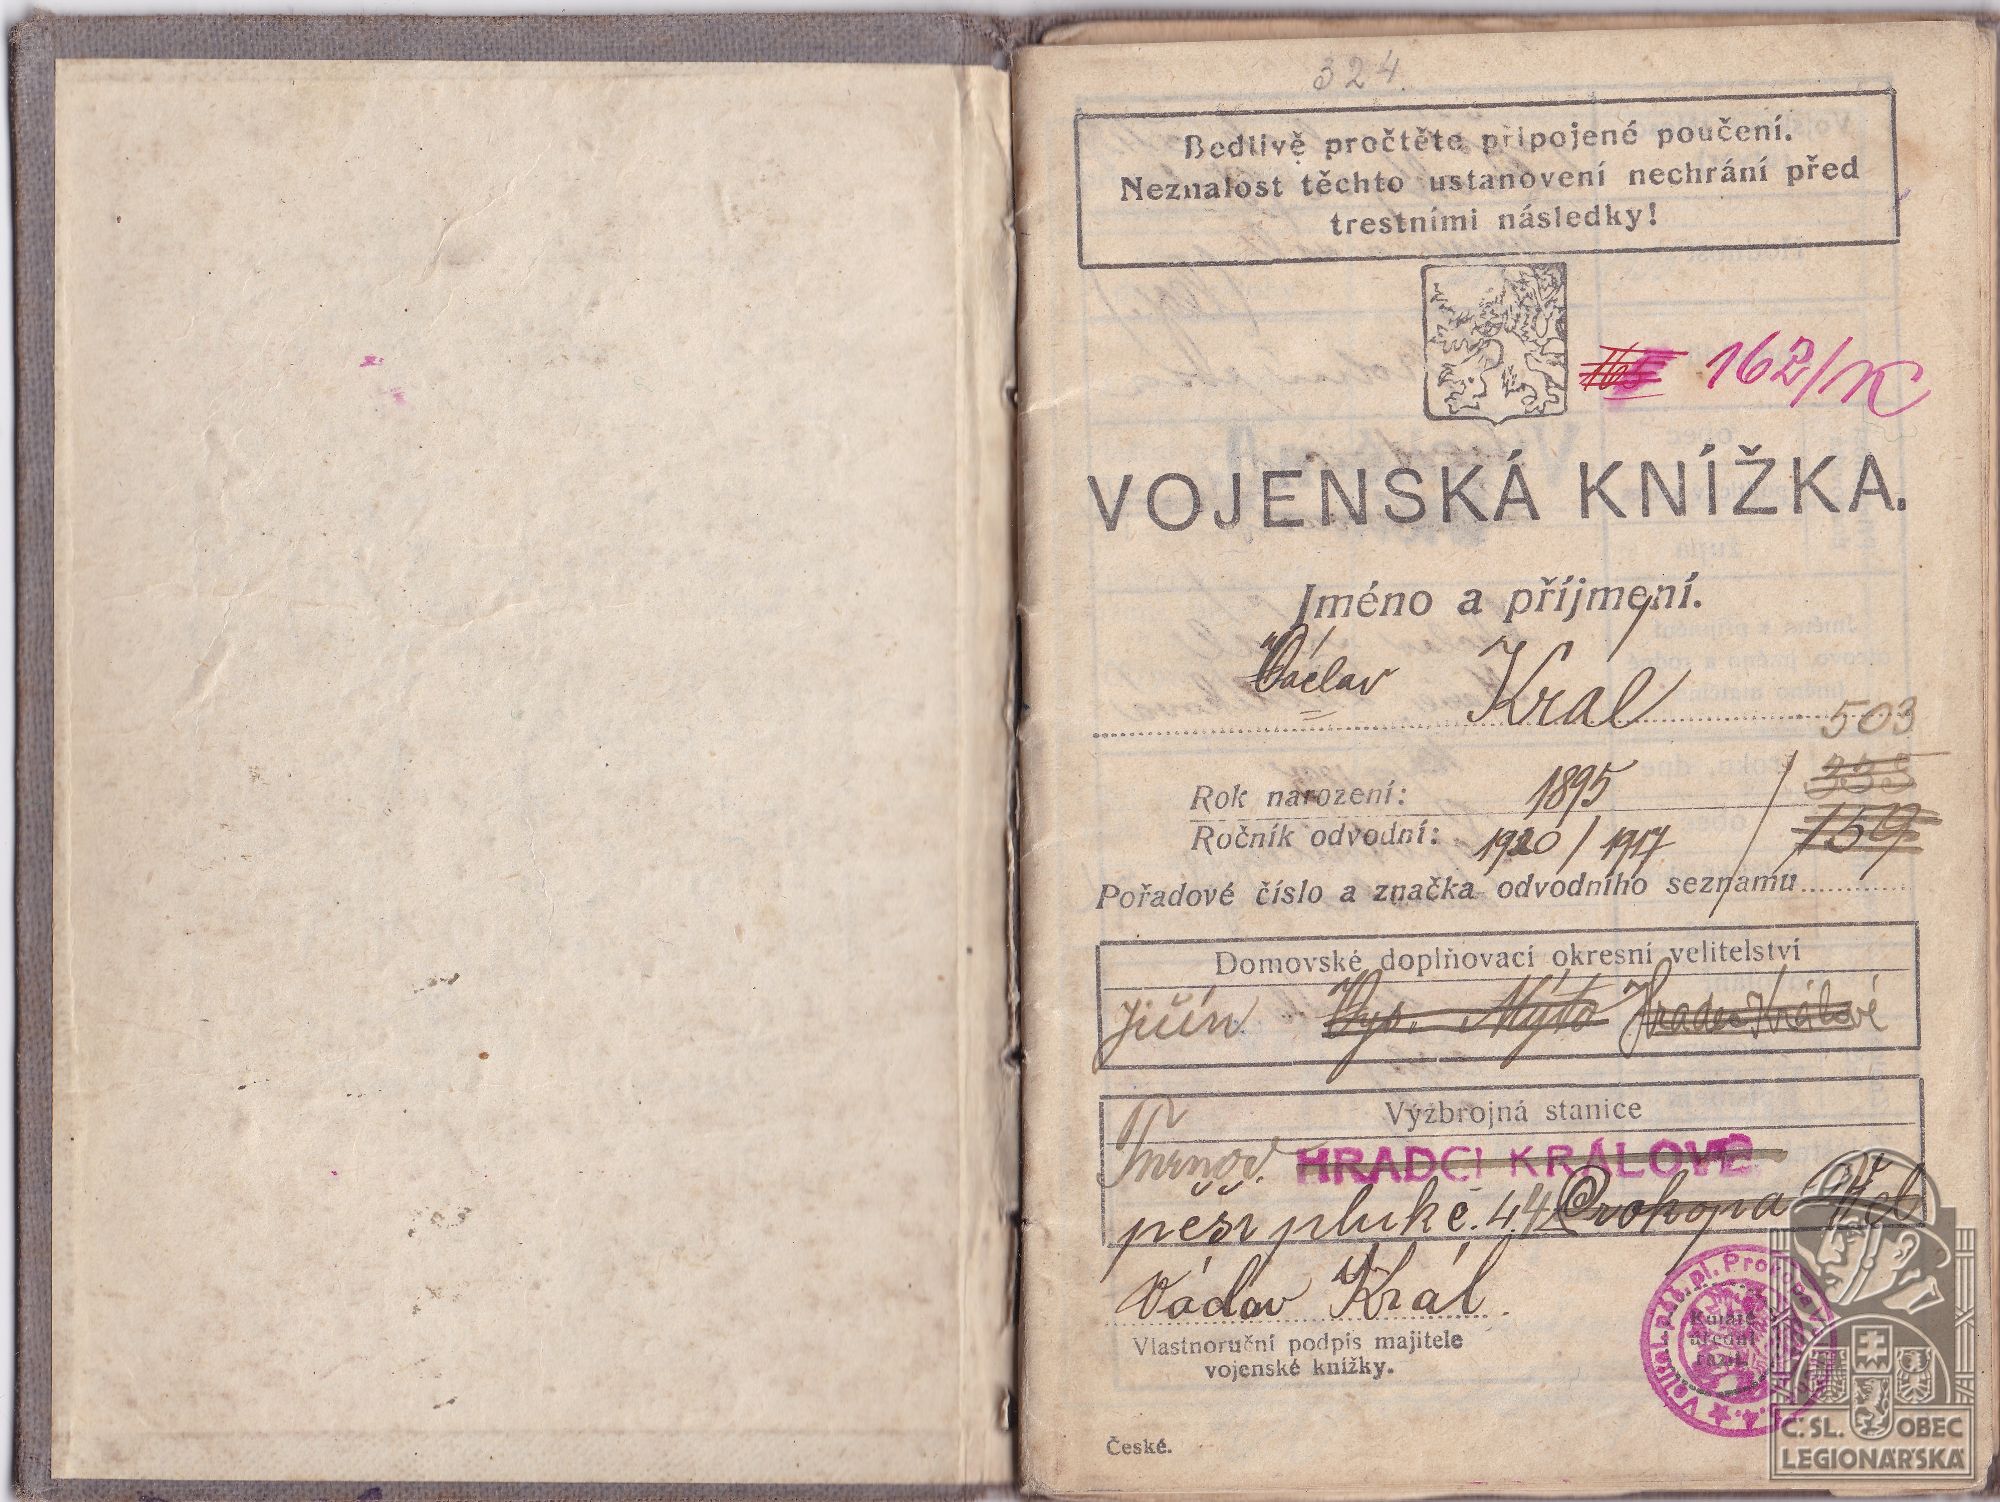 324.
Bedlivě pročtěte připojené poučení.
Neznalost těchto ustanovení nechrání před
trestními následky!
165 162/K
VOJENSKÁ KNÍŽKA.
Jméno a příjmení.
Václav Král
503
Rok narození: 1895 / 335
Ročník odvodní: 1920/1917 / 159
Pořadové číslo a značka odvodního seznamu
Domovské doplňovací okresní velitelství
Jičín Vys. Mýto Hradec Králové
Výzbrojná stanice
Turnov. HRADCI KRÁLOVÉ
pěší pluk č. 44 Prokopa Vel
Václav Král.
Vlastnoruční podpis majitele
vojenské knížky.
Velitel. pěš. pl. Prokopa V. 4.
Kulaté
úřední
razít.
České.
Č. SL. OBEC
LEGIONÁŘSKÁ